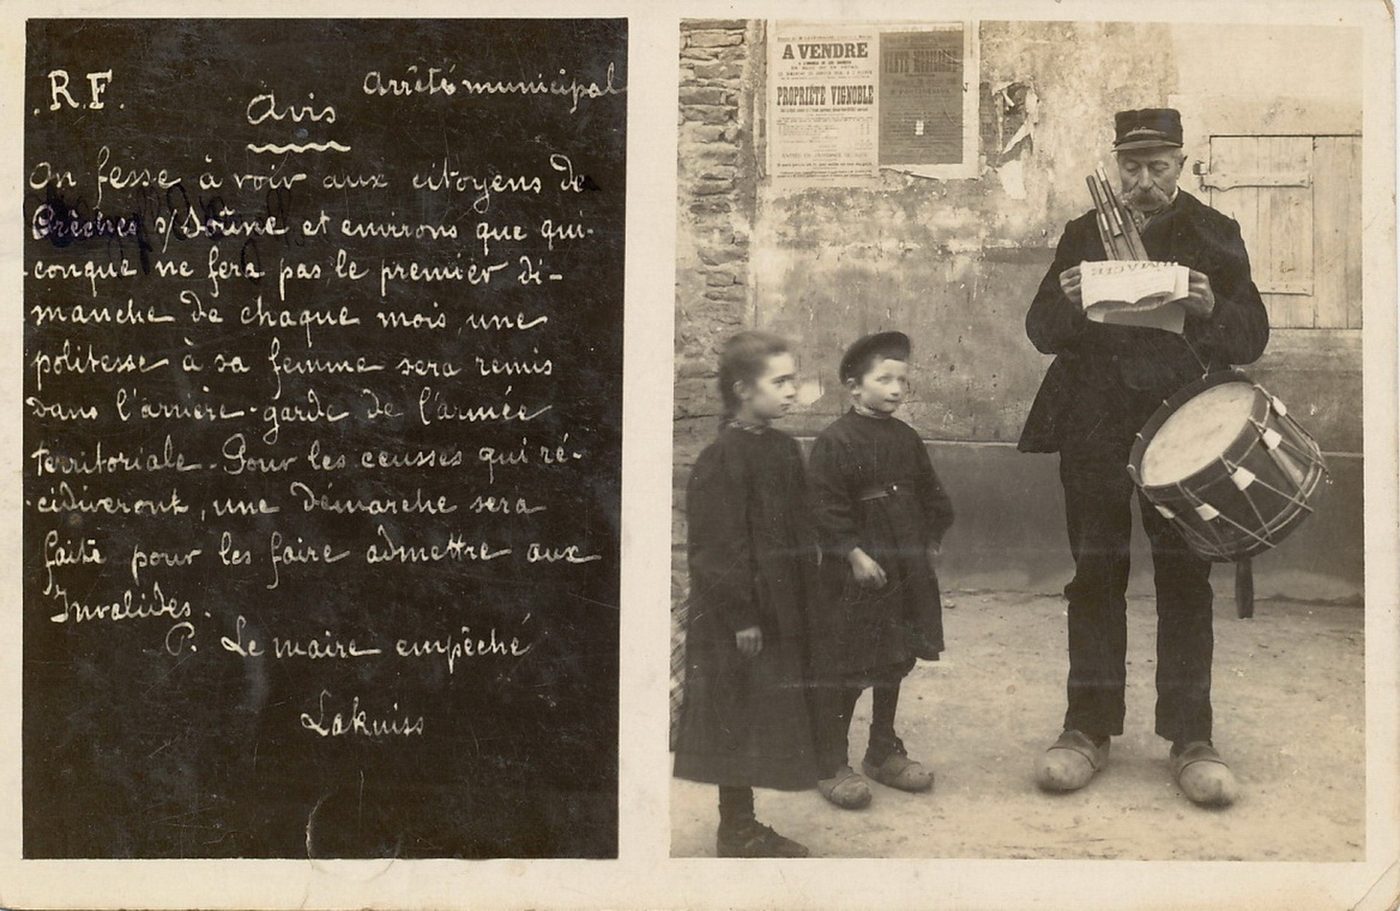 R.F.
Arrêté municipal
Avis
On fesse à voir aux citoyens de
Crêches s/Saône et environs que qui-
conque ne fera pas le premier di-
manche de chaque mois, une
politesse à sa femme sera remis
dans l'arrière-garde de l'armée
territoriale. Pour les ceusses qui ré-
cidiveront, une démarche sera
faite pour les faire admettre aux
Invalides.
P. Le maire empêché
Lakuiss
A VENDRE
PROPRIÉTÉ VIGNOBLE
VENTE MOBILIERE